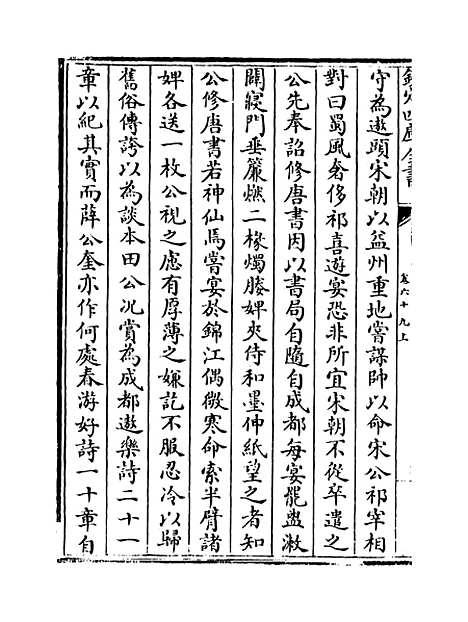 欽定四庫全書
卷六十九上
守為遨頭宋朝以益州重地嘗謀帥以命宋公祁宰相
對曰蜀風奢侈祁喜遊宴恐非所宜宋朝不從卒遣之
公先奉詔修唐書因以書局自隨自成都每宴罷盥漱
闢寢門垂簾燃二椽燭媵婢夾侍和墨伸紙望之者知
公修唐書若神仙焉嘗宴於錦江偶微寒命索半臂諸
婢各送一枚公視之慮有厚薄之嫌訖不服忍冷以歸
舊俗傳誇以為談本田公况賞為成都遨樂詩二十一
章以紀其實而薛公奎亦作何處春游好詩一十章自